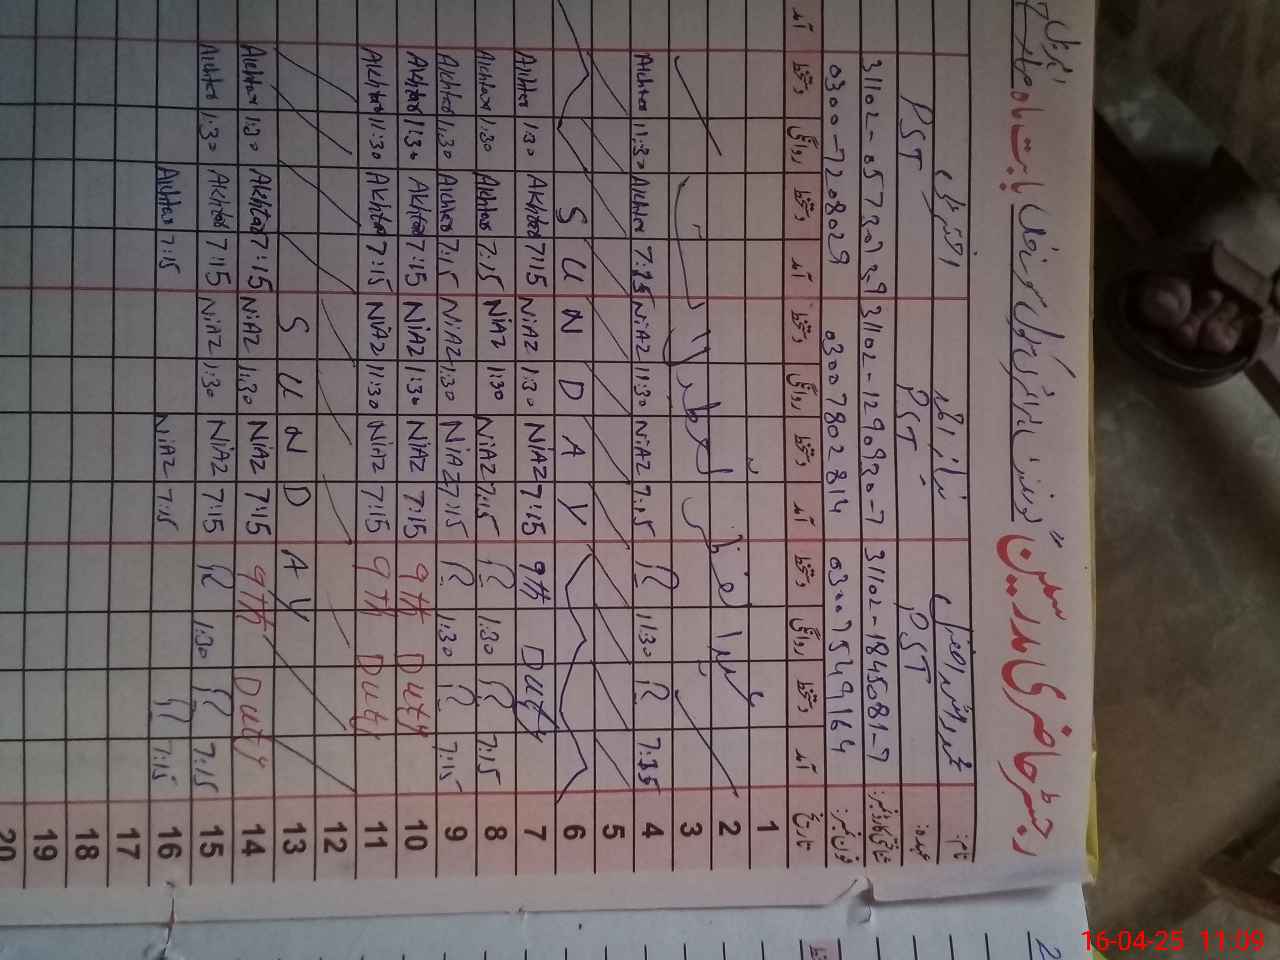 رجسٹر حاضری مدرسین
نام:
عہدہ: PST PST PST
شناختی کارڈ نمبر: 31102-1845081-7 31102-1290920-7 31102-0573073-9
فون نمبر: 03007549164 03007802814 0300-7208029
تاریخ آمد دستخط روانگی دستخط آمد دستخط روانگی دستخط آمد دستخط روانگی دستخط آمد
1
2 عید الفطر
3
4 R 11:30 R NiAZ 7:15 NiAZ 11:30 Akhtar Akhtar 11:30
5
6 S U N D A Y
7 9th Duty NiAZ 7:15 NiAZ 1:30 Akhtar 7:15 Akhtar 1:30
8 7:15 R 1:30 R NiAZ 7:15 NiAZ 1:30 Akhtar 7:15 Akhtar 1:30
9 7:15 R 1:30 R NiAZ 7:15 NiAZ 1:30 Akhtar 7:15 Akhtar 1:30
10 9th Duty NiAZ 7:15 NiAZ 1:30 Akhtar 7:15 Akhtar 1:30
11 9th Duty NiAZ 7:15 NiAZ 11:30 Akhtar 7:15 Akhtar 11:30
12
13 S U N D A Y
14 9th Duty NiAZ 7:15 NiAZ 1:30 Akhtar 7:15 Akhtar 1:30
15 7:15 R 1:30 R NiAZ 7:15 NiAZ 1:30 Akhtar 7:15 Akhtar 1:30
16 7:15 R NiAZ 7:15 Akhtar 7:15
17
18
19
20
16-04-25 11:09